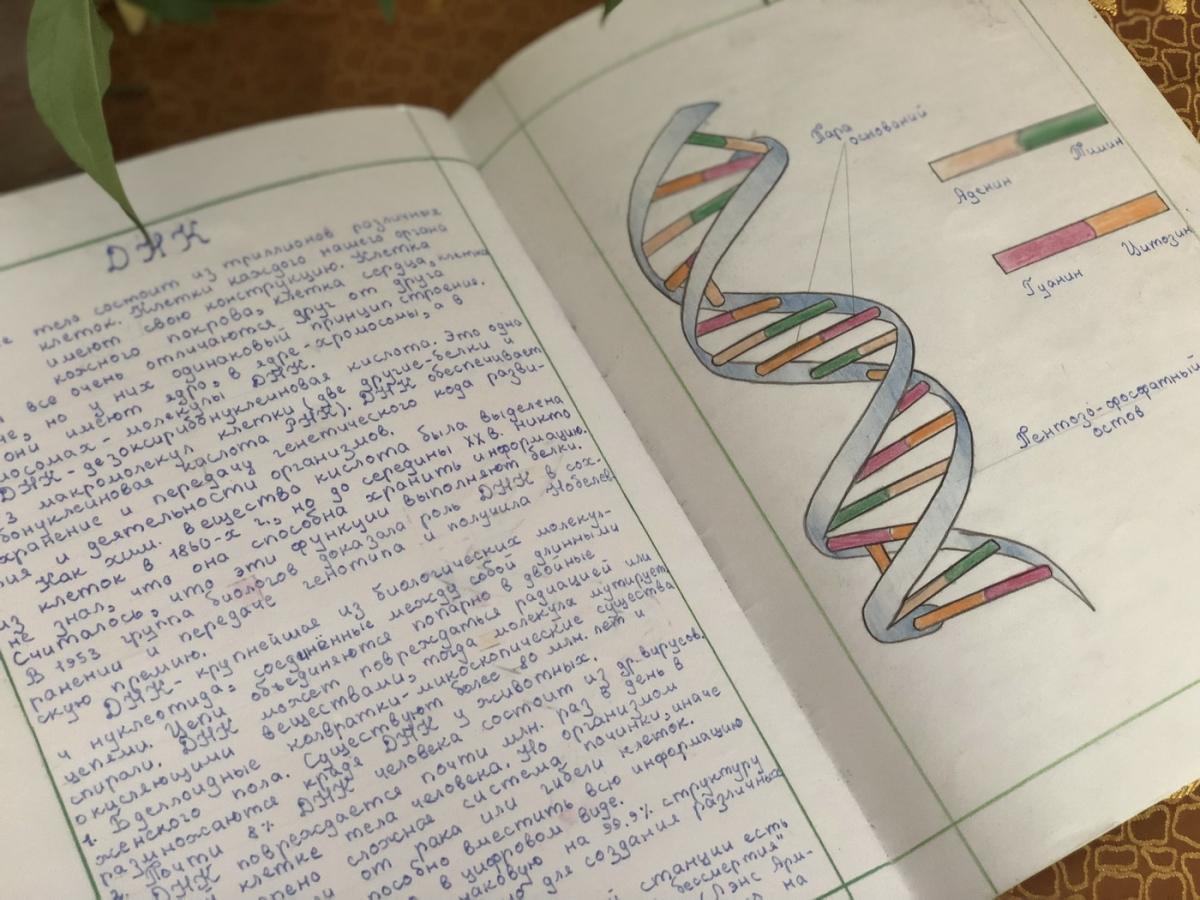 ДНК
тело состоит из триллионов различных
клеток. Клетки каждого нашего органа
имеют свою конструкцию. Клетка
кожного покрова, клетка сердца, клетка
все очень отличаются друг от друга
но у них одинаковый принцип строения.
они имеют ядро, в ядре - хромосомы, а в
молекулы ДНК.
ДНК - дезоксирибонуклеиновая кислота. Это одна
из макромолекул клетки (две другие - белки и
кислота РНК). ДНК обеспечивает
хранение и передачу генетического кода разви-
и деятельности организмов.
Как хим. вещество кислота была выделена
из клеток в 1860-х г., но до середины XX в. никто
не знал, что она способна хранить информацию.
Считалось, что эти функции выполняют белки.
В 1953 группа биологов доказала роль ДНК в сох-
ранении и передаче генотипа и получила Нобелев
скую премию.
ДНК - крупнейшая из биологических молекул-
4 нуклеотида, соединённые между собой длинными
цепями. Цепи объединяются попарно в двойные
спирали. ДНК может повреждаться радиацией или
окисляющими веществами, тогда молекула мутирует.
1. Бделлоидные коловратки - микоскопические существа
женского пола. Существуют более 80 млн. лет и
размножаются краде ДНК у животных.
2. Почти 8% ДНК человека состоит из др. вирусов.
ДНК повреждается почти млн. раз в день в
клетке тела человека. Но организмом
сложная система починки, иначе
от рака или гибели клеток.
способно вместить всю информацию
в цифровом виде.
на 99.9% структуру
для создания различных
станции есть
бессмертия"
на
Пара
оснований
Аденин
Тимин
Гуанин
Цитозин
Пентозо-фосфатный
остов